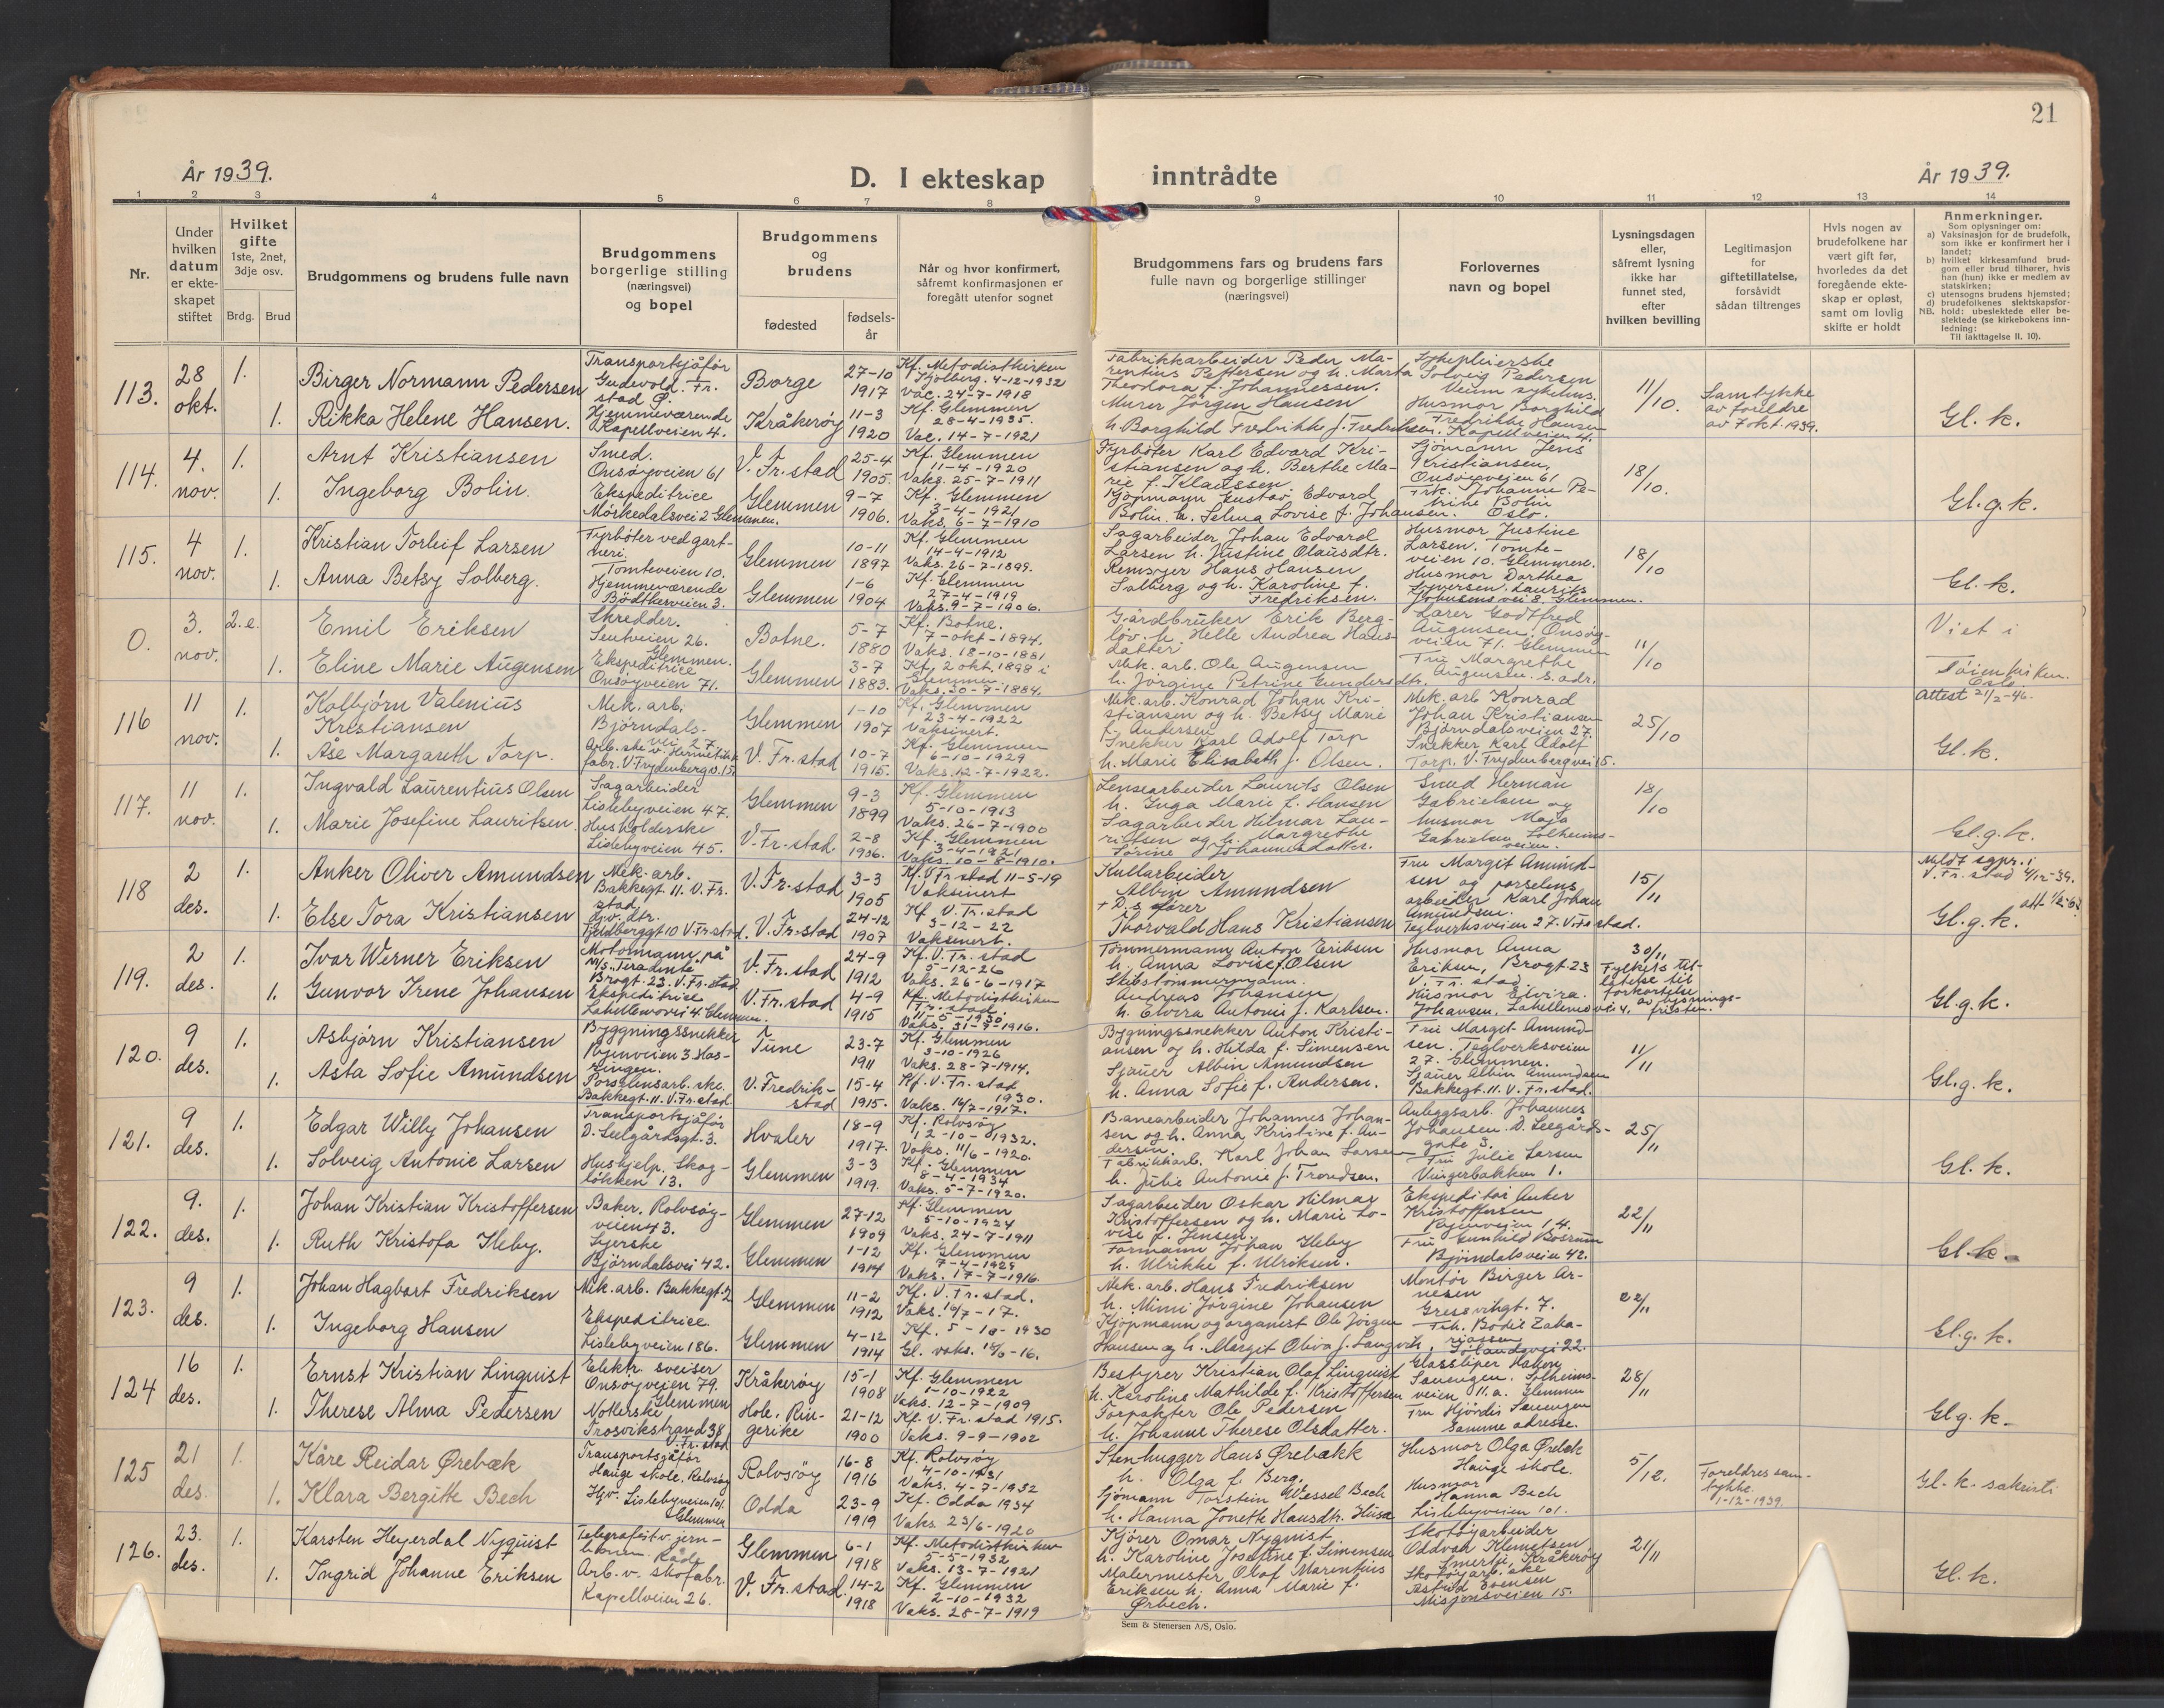 21
År 1939.
D. I ekteskap inntrådte
År 1939.
1 2 3 4 5 6 7 8 9 10 11 12 13 14
Nr.
Under hvilken datum er ekteskapet stiftet
Hvilket gifte
1ste, 2net, 3dje osv.
Brdg. Brud
Brudgommens og brudens fulle navn
Brudgommens borgerlige stilling (næringsvei) og bopel
Brudgommens og brudens
fødested
fødsels-år
Når og hvor konfirmert, såfremt konfirmasjonen er foregått utenfor sognet
Brudgommens fars og brudens fars fulle navn og borgerlige stillinger (næringsvei)
Forlovernes navn og bopel
Lysningsdagen eller, såfremt lysning ikke har funnet sted, efter hvilken bevilling
Legitimasjon for giftetillatelse, forsåvidt sådan tiltrenges
Hvis nogen av brudefolkene har vært gift før, hvorledes da det foregående ekteskap er opløst, samt om lovlig skifte er holdt
Anmerkninger.
Som oplysninger om:
a) Vaksinasjon for de brudefolk, som ikke er konfirmert her i landet;
b) hvilket kirkesamfund brudgom eller brud tilhører, hvis han (hun) ikke er medlem av statskirken;
c) utensogns brudens hjemsted;
d) brudefolkenes slektskapsforhold: ubeslektede eller beslektede (se kirkebokens innledning:
NB. Til iakttagelse II. 10).
113. 28 okt. 1. Birger Normann Pedersen
Transportsjåfør Gudevold. Fr. stad Ø.
Borge 27-10 1917
Kf. Metodistkirken 4-12-1932 Vac. 24-7-1918
Fabrikkarbeider Peder Marentius Pettersen og h. Marta Theodora f. Johannessen.
Sykepleierske Solveig Pedersen Veum sykehus.
11/10.
Samtykke av foreldre av 7 okt. 1939.
Gl. k.
1. Rikka Helene Hansen.
Hjemmeværende Kapellveien 4.
Kråkerøy 11-3 1920
Kf. Glemmen 28-4-1935. Vac. 14-7-1921
Murer Jörgen Hansen h. Borghild Fredrikke f. Fredriksen.
Husmor Borghild Fredrikke Hansen Kapellveien 4.
114. 4. nov. 1. Arnt Kristiansen
Smed. Onsøyveien 61
V. Fr. stad 25-4 1905.
Kf. Glemmen 11-4-1920 Vaks. 25-7-1911
Fyrbøter Karl Edvard Kristiansen og h. Berthe Marie f. Klaussen
Sjömann Jens Kristiansen, Onsøyveien 61
18/10.
Gl. g. k.
1. Ingeborg Bolin.
Ekspeditrice Mørkedalsvei 2 Glemmen.
Glemmen 9-7 1906.
Kf. Glemmen 3-4-1921 Vaks. 6-7-1910
Kjöpmann Gustav Edvard Bolin. h. Selma Lovise f. Johansen.
Frk. Johanne Petrine Bolin Oslo.
115. 4 nov. 1. Kristian Torleif Larsen
Fyrbøter ved gartneri. Tomteveien 10.
Glemmen 10-11 1897
Kf. Glemmen 14-4-1912 Vaks. 26-7-1899.
Sagarbeider Johan Edvard Larsen h. Justine Olausdtr.
Husmor Justine Larsen. Tomteveien 10. Glemmen.
18/10
Gl. k.
1. Anna Betsy Solberg.
Hjemmeværende Bödtkerveien 3.
Glemmen 1-6 1904
Kf. Glemmen 27-4-1919 Vaks. 9-7-1906.
Remsyer Hans Hansen Solberg og h. Karoline f. Fredriksen.
Husmor Dorthea Syversen. Laurits Johnsens vei 8. Glemmen.
0. 3. nov. 2. e. Emil Eriksen
Skredder. Leutveien 26. Glemmen.
Botne. 5-7 1880
Kf. Botne. 7-okt-1894. Vaks. 18-10-1881
Gårdbruker Erik Bergløv. h. Helle Andrea Hansdatter
Lærer Godtfred Augensen. Onsøyveien 71. Glemmen
11/10
Viet i Töienkirken. Oslo
Attest 21/2-46.
1. Eline Marie Augensen
Ekspeditrice Onsöyveien 71.
Glemmen 3-7 1883.
Kf, 2 okt. 1898 i Glemmen. Vaks. 30-7-1884.
Mek. arb. Ole Augensen h. Jörgine Petrine Gundersdtr.
Fru Margrethe Augensen. s. adr.
116 11 nov. 1. Kolbjørn Valenius Kristiansen
Mek. arb. Bjørndalsvei 27.
Glemmen 1-10 1907
Kf. Glemmen 23-4-1922 Vaksinert.
Mek. arb. Konrad Johan Kristiansen og h. Betsy Marie f. Andersen
Mek. arb Konrad Johan Kristiansen Bjørndalsveien 27.
25/10
Gl. k.
1. Åse Margareth Torp.
Arb. ske v. Hermetikkfabr. V. Frydenberg v. 15
V. Fr. stad 10-7 1915.
Kf. Glemmen 6-10-1929 Vaks. 12-7-1922.
Snekker Karl Adolf Torp h. Marie Elisabeth f. Olsen.
Snekker Karl Adolf Torp. V. Frydenbergvei 15.
117. 11 nov. 1. Ingvald Laurentius Olsen
Sagarbeider Lislebyveien 47.
Glemmen 9-3 1899
Kf. Glemmen 5-10-1913 Vaks. 26-7-1900
Lensearbeider Laurits Olsen h. Inga Marie f. Hansen
Smed Herman Gabrielsen og
18/10
Gl. g. k.
1. Marie Josefine Lauritsen.
Husholderske Lislebyveien 45.
V. Fr. stad. 2-8 1906.
Kf. Glemmen 3-4-1921 Vaks. 10-8-1910.
Sagarbeider Hilmar Lauritsen og h. Margrethe Törine Johannesdatter.
husmor Maja Gabrielsen Solheimsveien.
118 2 des. 1. Anker Oliver Amundsen
Mek. arb. Bakkegt. 11. V. Fr. stad
V. Fr. stad 3-3 1905
Kf. V Fr. stad 11-5-19 Vaksinert
Kullarbeider Albin Amundsen
Fru Margit Amundsen og porselensarbeider Karl Johan Amundsen. Teglverksveien 27. V. Fr. stad.
15/11
Meldt sgpr. i V. Fr. stad 4/12-39.
Gl. g. k.
1. Else Tora Kristiansen
Hjv. dtr. Fjeldberggt 10 V. Fr. stad.
V. Fr. stad 24-12 1907
Kf. V. Fr. stad 3-12-22 Vaksinert.
+ D. s. fører Thorvald Hans Kristiansen
119. 2 des. 1. Ivar Werner Eriksen
Motormann på M/S "Teradinte" Brogt. 23. V. Fr. stad
V. Fr. stad 24-9 1912
Kf. V. Fr. stad 5-12-26 Vaks. 26-6-1917
Tömmermann Anton Eriksen h. Anna Lovise f. Olsen
Husmor Anna Eriksen, Brogt. 23 V. Fr. stad.
30/11 Fylkets tillatelse til forkortelse av lysningsfristen.
Gl. g. k.
1. Gunvor Irene Johansen
Ekspeditrice Labellensvei 4 Glemmen.
V. Fr. stad 4-9 1915
Kf. Metodistkirken Fr. stad. 11-5-1930. Vaks. 31-7-1916.
Skibstømmermann. Andreas Johansen h. Elvira Antonie f. Karlsen.
Husmor Elvira Johansen, Labellensvei 4.
120. 9 des. 1. Asbjørn Kristiansen
Byggningssnekker Ryenveien 3 Hassingen.
Tune 23-7 1911
Kf. Glemmen 3-10-1926 Vaks. 28-7-1914.
Bygningssnekker Anton Kristiansen og h. Hilda f. Simensen
Fru Margit Amundsen. Teglverksveien 27. Glemmen.
11/11
Gl. g. k.
1. Asta Sofie Amundsen
Porselensarb. ske. Bakkegt. 11. V. Fr. stad.
V. Fredrikstad 15-4 1915.
Kf. V. Fr. stad 1930. Vaks. 14/7-1917.
Sjauer Albin Amundsen h. Anna Sofie f. Andersen.
Sjauer Albin Amundsen Bakkegt. 11. V. Fr. stad.
121. 9 des. 1. Edgar Willy Johansen
Transportsjåfør D. Leegårdsgt. 3.
Hvaler 18-9 1917.
Kf. Rolvsøy 12-10-1932. Vaks. 11/6-1920.
Banearbeider Johannes Johansen og h. Anna Kristine f. Andersen.
Anleggsarb. Johannes Johansen. D. Leegårdsgate 3.
25/11
Gl. k.
1. Solveig Antonie Larsen
Hushjelp. Skogløkken 13.
Glemmen 3-3 1919.
Kf. Glemmen 8-4-1934 Vaks. 5-7-1920.
Fabrikkarb. Karl Johan Larsen h. Julie Antonie f. Trondsen.
Fru Julie Larsen Vingerbakken 1.
122. 9. des. 1. Johan Kristian Kristoffersen
Baker. Rolvsøyveien 43.
Glemmen 27-12 1909
Kf. Glemmen 5-10-1924 Vaks. 24-7-1911
Sagarbeider Oskar Hilmar Kristoffersen og h. Marie Lovise f. Jensen.
Ekspeditør Anker Kristoffersen Ryenveien 14.
22/11
Gl. k.
1. Ruth Kristofa Heby.
Syerske Bjørndalsvei 42.
Glemmen 1-12 1914
Kf. Glemmen 7-4-1929 Vaks. 17-7-1916.
Formann Johan Heby h. Ulrikke f. Ulriksen.
Fru Gunhild Bosrum Bjørndalsveien 42.
123. 9 des. 1. Johan Hagbart Fredriksen
Mek. arb. Bakkegt. 2
Glemmen 11-2 1912
Kf. V. Fr. stad. Vaks. 14/7-17.
Mek. arb. Hans Fredriksen h. Mimi Jörgine Johansen
Montör Birger Arnesen Gressvikgt. 7.
22/11
Gl. g. k.
1. Ingeborg Hansen
Ekspeditrice Lislebyveien 186.
Glemmen 4-12 1914
Kf. 5-10-1930 Gl. vaks. 18/6-16.
Kjöpmann og organist Ole Jörgen Hansen og h. Margit Oliva f. Langvik.
Frk. Bodil Zakariassen Sørlandsvei 22.
124 16 des. 1. Ernst Kristian Linquist
Elektr. sveiser Onsøyveien 79. Glemmen
Kråkerøy 15-1 1908
Kf. Glemmen 1-10-1922 Vaks. 12-7-1909
Bestyrer Kristian Olaf Linquist h. Karoline Mathilde f. Kristoffersen
Glassliper Håkon Sauengen. Solheimsveien 11. a. Glemmen
28/11
Gl g. k.
1. Therese Alma Pedersen
Noterske Trosvikstrand 38 V. Fr. stad
Hole. Ringerike 21-12 1900
Kf. V. Fr. stad 1915. Vaks. 9-9-1902
Forpakter Ole Pedersen h. Johanne Therese Olsdatter.
Fru Hjördis Sauengen Samme adresse.
125 21 des. 1. Kåre Reidar Ørebæk
Transportsjåfør Hauge skole. Rolvsøy
Rolvsøy 16-8 1916
Kf. Rolvsøy 4-10-1931 Vaks. 4-7-1932
Stenhugger Hans Ørebækk h. Olga f. Berg.
Husmor Olga Ørebæk Hauge skole.
5/12.
Foreldres samtykke. 1-12-1939.
Gl. k. sakristi
1. Klara Bergitte Bech
Hjv. Lislebyveien 101. Glemmen
Odda 23-9 1919
Kf. Odda 1934 Vaks. 23/6-1920
Sjömann Torstein Wessel Bech h. Hanna Jonette Hansdtr. Husa
Husmor Hanna Bech Lislebyveien 101.
126. 23. des. 1. Karsten Heyerdal Nyquist
Telegrafist v. jernbanen Råde
Glemmen 6-1 1918
Kf. Metodistkirken 5-5-1932 Vaks. 13-7-1921
Kjører Omar Nyquist h. Karoline Josefine f. Simensen
Skotøyarbeider Oddvar Klemetsen Smertu, Kråkerøy
21/11
Gl. k.
1. Ingrid Johanne Eriksen
Arb. v. skofabr. Kapellveien 26.
V. Fr. stad 14-2 1918
Kf. Glemmen 2-10-1932 Vaks. 28-7-1919
Malermester Olaf Marentius Eriksen h. Anna Marie f. Ørbech.
Skotøyarb. ske Astrid Evensen Misjonsveien 15.
Sem & Stenersen A/S, Oslo.